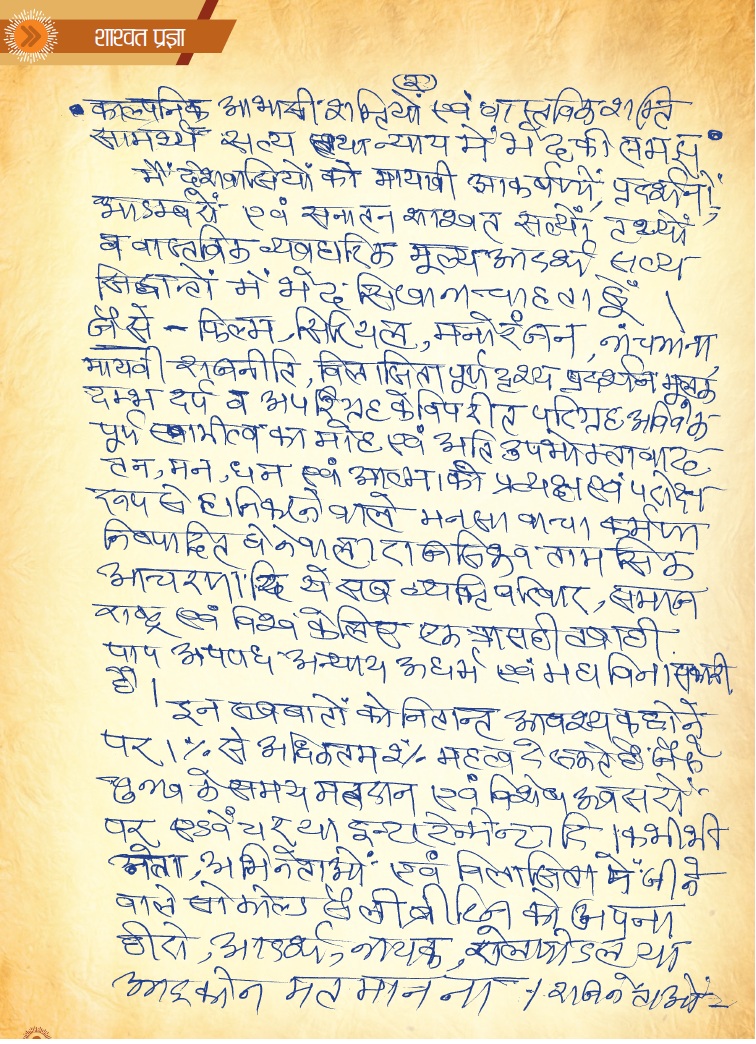 शाश्वत प्रज्ञा
(२)
• काल्पनिक आभासी शक्तियों एवं वास्तविक शक्ति
सामर्थ्य सत्य तथा न्याय में भेद की समझ •
मैं देशवासियों को मायावी आकर्षणों, प्रदर्शनों,
आडम्बरों एवं सनातन शाश्वत सत्यों, तथ्यों
व वास्तविक व्यवहारिक मूल्य आदर्श सत्य
सिद्धान्तों में भेद सिखाना चाहता हूँ ।
जैसे - फिल्म, सिरियल, मनोरंजन, नाच गाना,
मायावी राजनीति, विलासिता पूर्ण दृश्य प्रदर्शन मूलक
दम्भ दर्प व अपरिग्रह के विपरीत परिग्रह अविवेक
पूर्ण स्वामीत्व का मोह एवं अति उपभोक्तावाद
तन, मन, धन एवं आत्मा की प्रत्यक्ष एवं परोक्ष
रूप से हानि करने वाले मनसा वाचा कर्मणा
निष्पादित होने वाला राजसिक व तामसिक
आचरणादि ये सब व्यक्ति परिवार, समाज
राष्ट्र एवं विश्व के लिए एक त्रासदी तबाही
पाप अपराध अन्याय अधर्म एवं महाविनाशकारी
है ।
इन सब बातों को नितान्त आवश्यक होने
पर 1% से अधिकतम २% महत्व दे सकते हैं जैसे
चुनाव के समय मतदान एवं विशेष अवसरों
पर एडवेंचर या इन्टरटेनमेन्टादि । कभी भी
नेता, अभिनेताओं एवं विलासिता में जीने
वाले सो कोल्ड सैलीब्रीटिज को अपना
हीरो, आदर्श, नायक, रोलमॉडल या
आइकोन मत मानना । राजनेताओं -